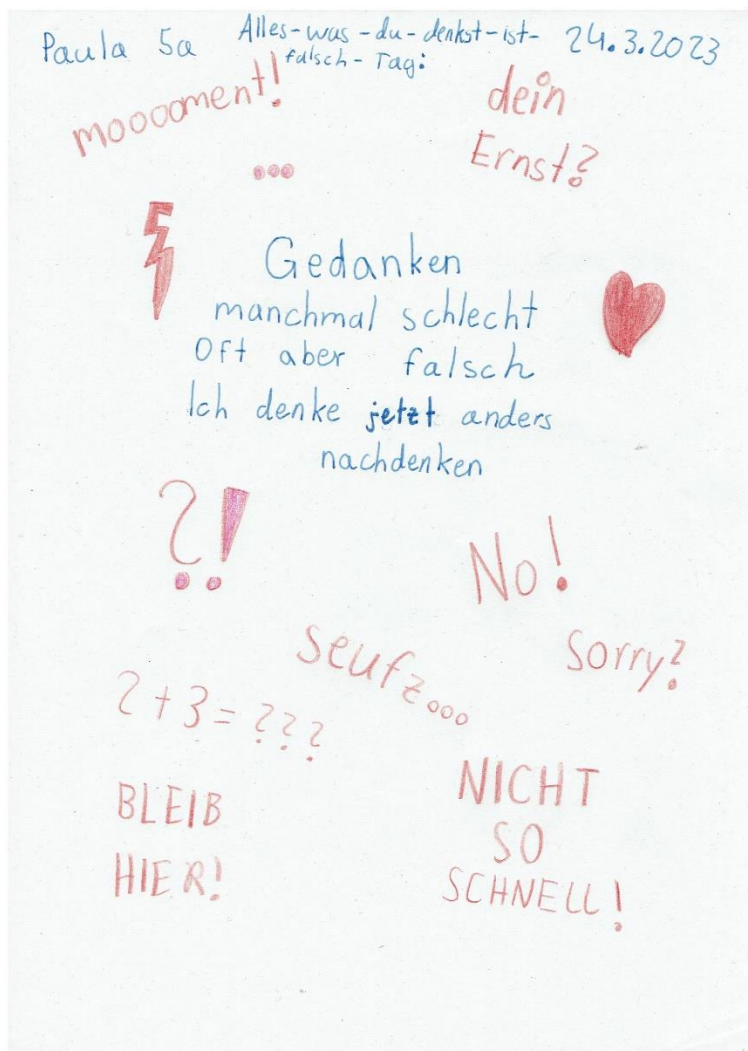 Paula 5a Alles-was-du-denkst-ist- 24.3.2023
falsch-Tag:
moooament!
dein
Ernst?
...
Gedanken
manchmal schlecht
Oft aber falsch
Ich denke jetzt anders
nachdenken
?!
No!
Sorry?
seufz...
2+3=???
BLEIB
HIER!
NICHT
SO
SCHNELL!